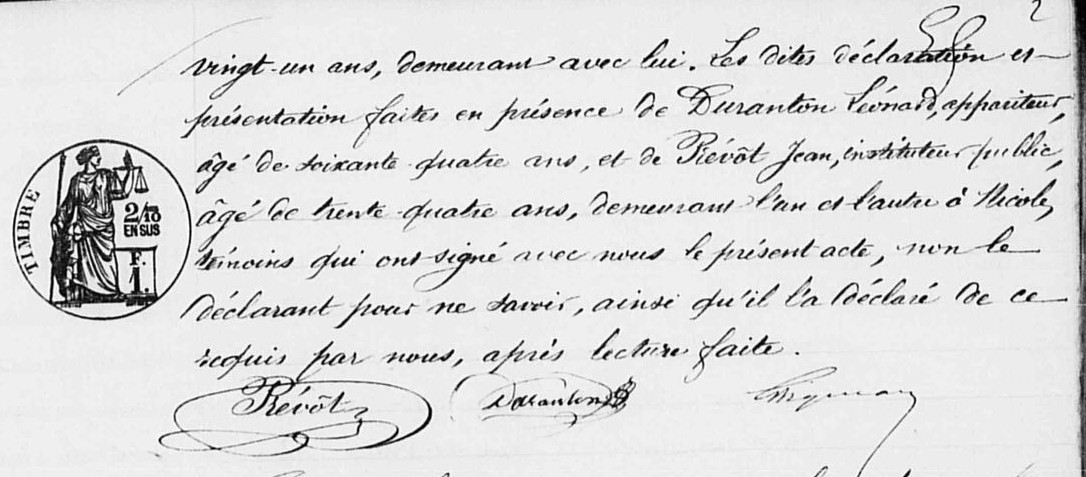 2
vingt-un ans, demeurant avec lui. Les dites déclaration et
présentation faites en présence de Duranton Léonard, appariteur,
âgé de soixante-quatre ans, et de Prévôt Jean, instituteur public,
âgé de trente-quatre ans, demeurant l'un et l'autre à
témoins qui ont signé avec nous le présent acte, non le
déclarant pour ne savoir, ainsi qu'il l'a déclaré de ce
requis par nous, après lecture faite.
TIMBRE
2/10
EN SUS
F.
1.
Prévôt Duranton